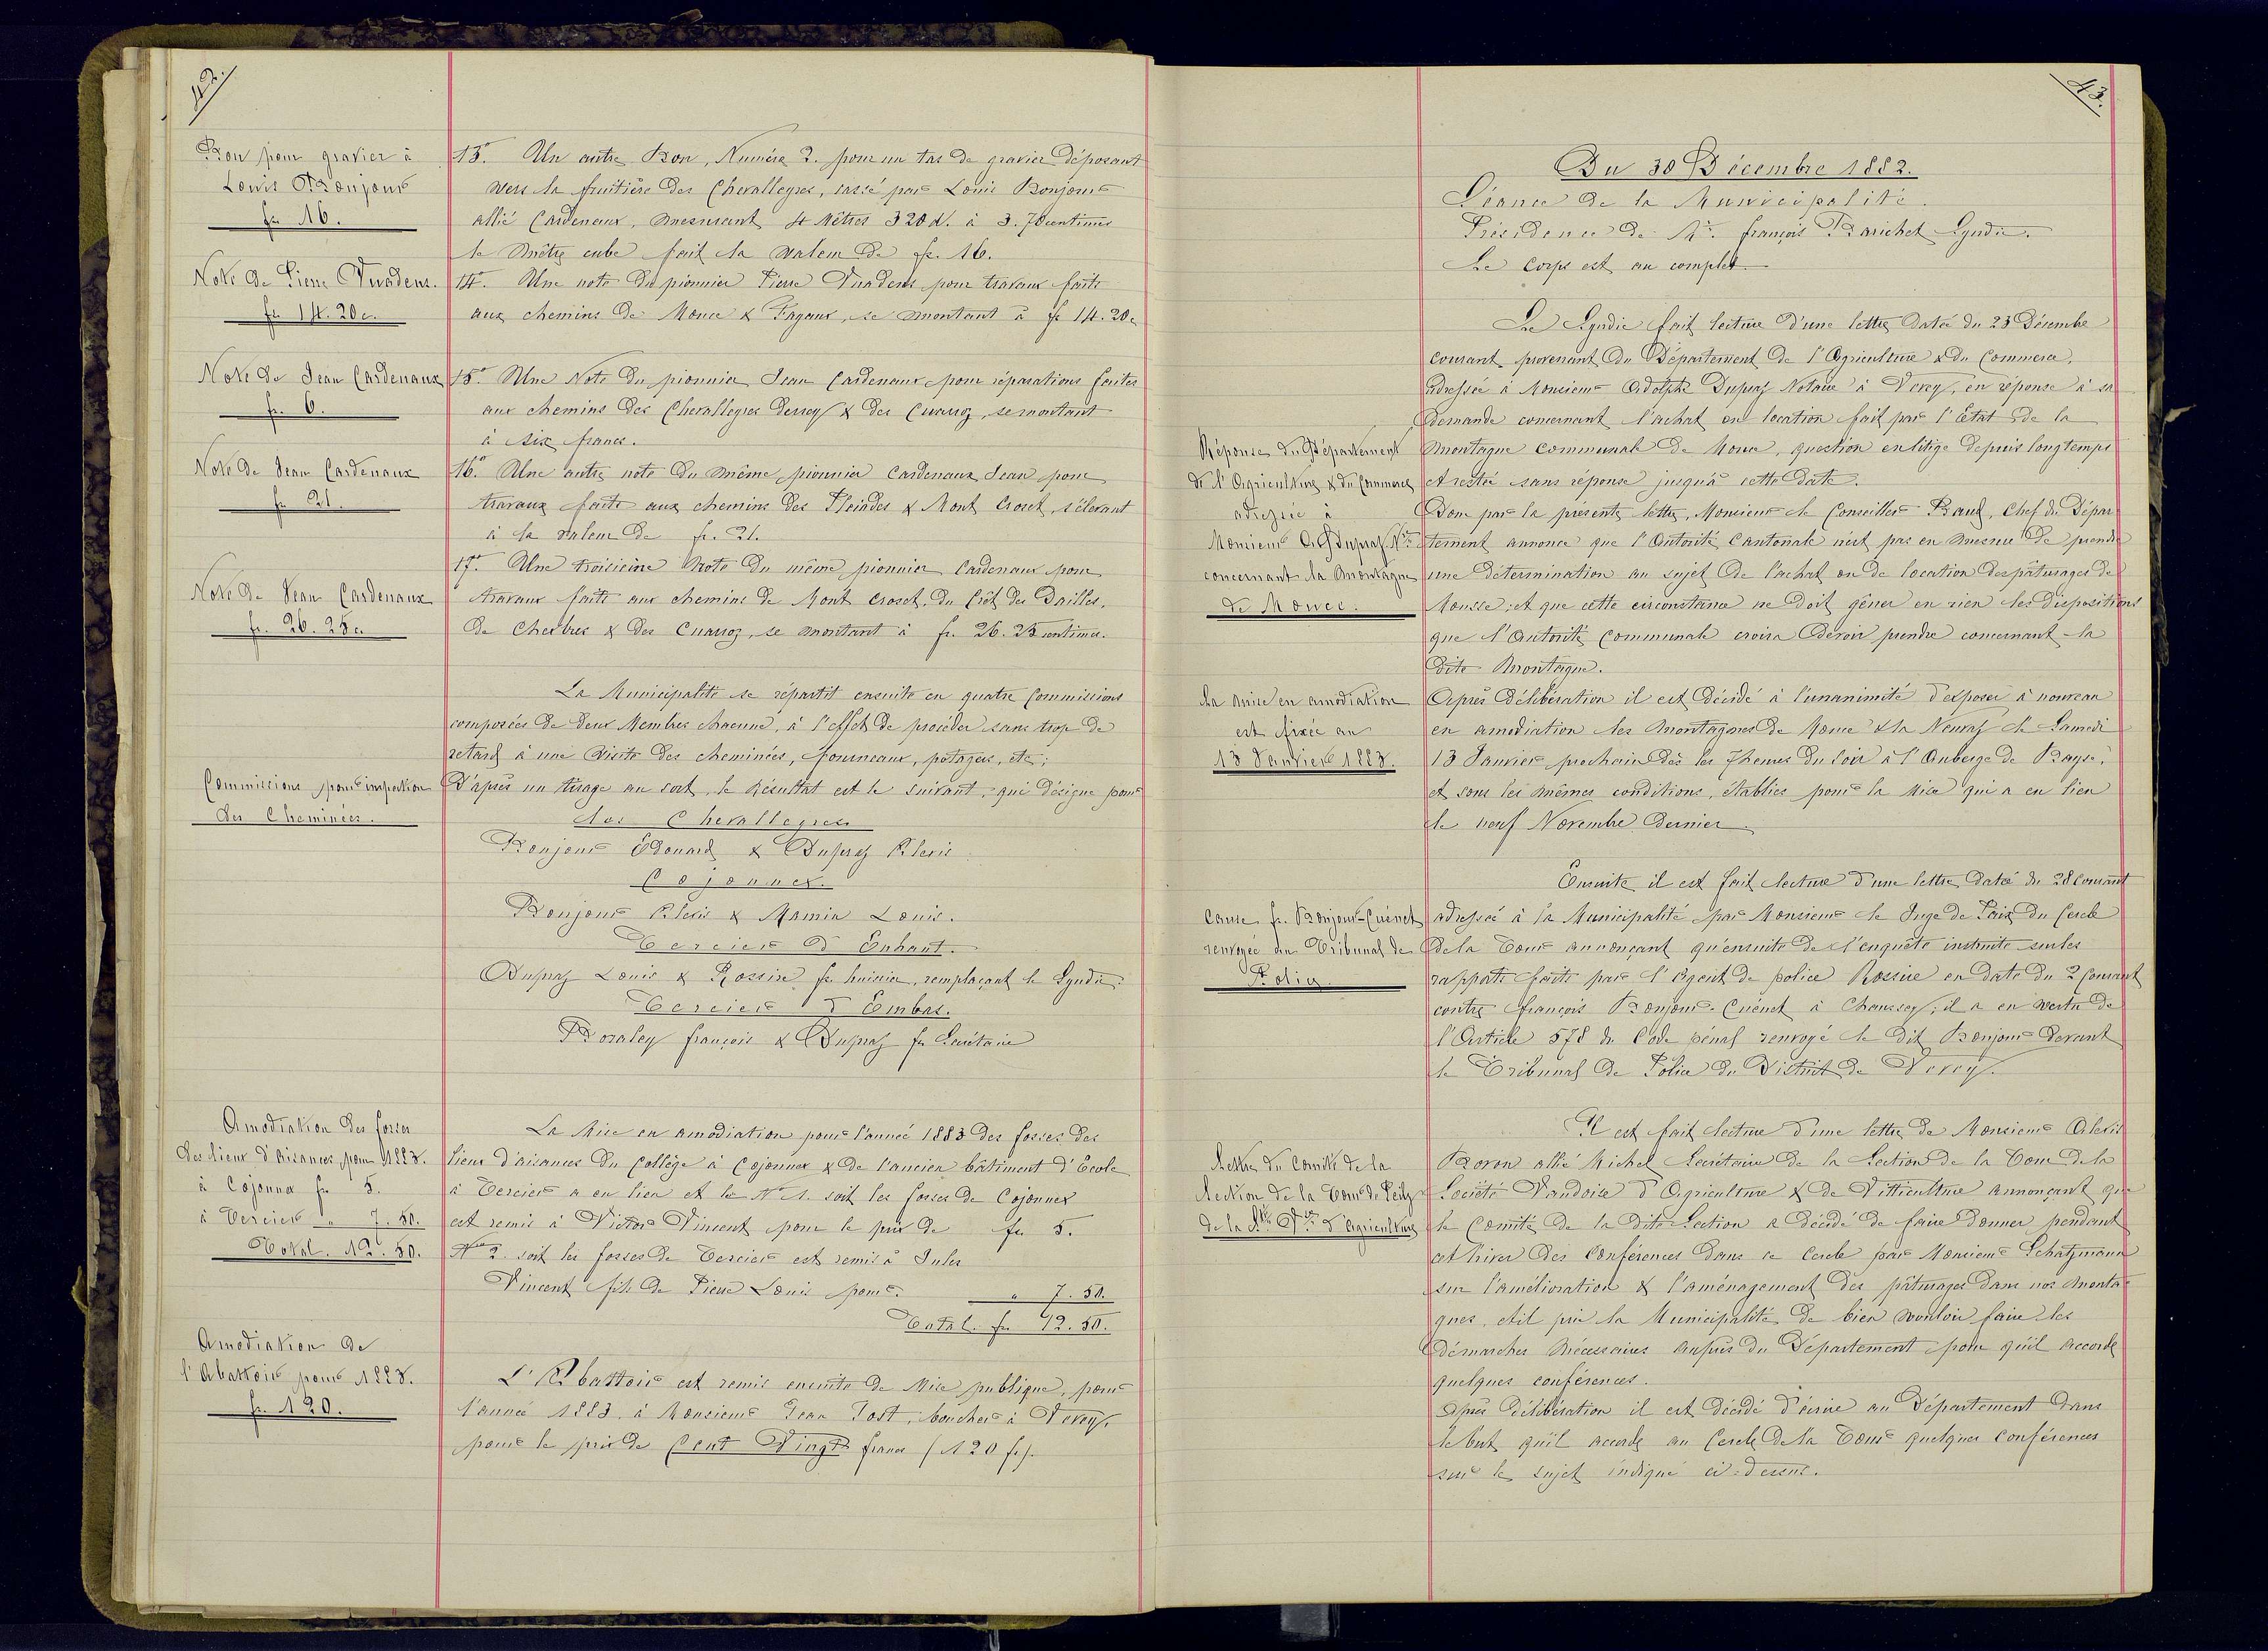 42.
Bon pour gravier à
Louis Bonjour
fr. 16.
13° Un autre Bon, Numéro 2. pour un tas de gravier déposant
vers la fruitière des Chevalleyres, cassé par Louis Bonjour
allié Cardenaux, mesurant 4 Mètres 320 d. à 3.70 centimes
le Mètre cube fait la valeur de fr. 16.
Note de Pierre Vuadens.
fr. 14.20c.
14° Une note du pionnier Pierre Vuadens pour travaux faits
aux chemins de Mouce & Fayaux, se montant à fr 14.20c
Note de Jean Cardenaux
fr. 6.
15° Une Note du pionnier Jean Cardenaux pour réparations faites
aux chemins des Chevalleyres dessey & des Cuarroz, se montant
à six francs.
Note de Jean Cardenaux
fr 21.
16° Une autre note du même pionnier Cardenaux Jean pour
travaux faits aux chemins des Pleiades & Mont Croset, s'élevant
à la valeur de fr. 21.
Note de Jean Cardenaux
fr. 26.25c.
17° Une troisième Note du même pionnier Cardenaux pour
travaux faits aux chemins de Mont Croset, du Crêt des Dailles,
de Cherbres & des Cuarroz, se montant à fr. 26.25 centimes.
La Municipalité se répartit ensuite en quatre Commissions
composées de deux Membres chacune, à l'effet de procéder sans trop de
retard à une visite des cheminées, fourneaux, potagers, etc;
Commissions pour inspection
des Cheminées.
D'après un tirage au sort, le résultat est le suivant, qui désigne pour
les Chevalleyres
Bonjour Edouard & Dupraz Alexis
Cojonnex.
Bonjour Alexis & Mamin Louis.
Tercier d'Enhaut.
Dupraz Louis & Rossire fs huissier, remplaçant le Syndic.
Tercier d'Embas.
Boraley françois & Dupraz fs Secrétaire
Amodiation des fosses
des lieux d'aisances pour 1883.
à Cojonnex fr 5.
à Tercier " 7.50.
Total. 12.50.
La Mise en amodiation pour l'année 1883 des fosses des
lieux d'aisances du Collège à Cojonnex & de l'ancien bâtiment d'École
à Tercier a eu lieu et le N° 1. soit les fosses de Cojonnex
est remis à Victor Vincent pour le prix de fr. 5.
N° 2. soit les fosses de Tercier est remis à Jules
Vincent fils de Pierre Louis pour. " 7.50.
Total. fr 12.50.
Amodiation de
l'Abattoir pour 1883.
fr. 120.
L'Abattoir est remis ensuite de Mise publique, pour
l'année 1883. à Monsieur Jean Jost, boucher à Vevey,
pour le prix de Cent Vingt francs (120 fr).
43.
Du 30 Décembre 1882.
Séance de la Municipalité.
Présidence de Mr. françois Barichet Syndic.
Le Corps est au complet.
Le Syndic fait lecture d'une lettre datée du 23 Décembre
courant provenant du Département de l'Agriculture & du Commerce,
adressée à Monsieur Adolphe Dupraz Notaire à Vevey, en réponse à sa
demande concernant l'achat ou location fait par l'État de la
Réponse du Département
de l'Agriculture & du Commerce
adressée à
Monsieur Ad. Dupraz Nre
concernant la Montagne
de Mouce.
Montagne Communale de Mouce, question en litige depuis longtemps
et restée sans réponse jusqu'à cette date.
Donc par la présente lettre, Monsieur le Conseiller Baud, Chef du Dépar
tement annonce que l'Autorité Cantonale n'est pas en mesure de prendre
une détermination au sujet de l'achat ou de location des pâturages de
Mousse, et que cette circonstance ne doit gêner en rien les dispositions
que l'Autorité Communale croira devoir prendre concernant la
dite Montagne.
La mise en amodiation
est fixée au
13 Janvier 1883.
Après délibération il est décidé à l'unanimité d'exposer à nouveau
en amodiation les Montagnes de Mouce & la Neuvaz le Samedi
13 Janvier prochain dès les 7 heures du soir à l'Auberge de Bayse,
et sous les mêmes conditions, établies pour la Mise qui a eu lieu
le neuf Novembre dernier.
Ensuite il est fait lecture d'une lettre datée du 28 Courant
Cause fs. Bonjour-Cuénet
renvoyée au Tribunal de
Police.
adressée à la Municipalité par Monsieur le Juge de Paix du Cercle
de la Tour annonçant qu'ensuite de l'enquête instruite sur les
rapports faits par l'Agent de police Rossire en date du 2 Courant
contre françois Bonjour-Cuénet à Chaussey, il a en vertu de
l'Article 578 du Code pénal renvoyé le dit Bonjour devant
le Tribunal de Police du District de Vevey.
Il est fait lecture d'une lettre de Monsieur Alexis
Lettre du Comité de la
Section de la Tour de Peilz
de la Sté Vse d'Agriculture
Boron allié Michel Secrétaire de la Section de la Tour de la
Société Vaudoise d'Agriculture & de Vitticulture annonçant que
le Comité de la dite Section a décidé de faire donner pendant
cet hiver des Conférences dans ce Cercle par Monsieur Schatzmann
sur l'amélioration & l'aménagement des pâturages dans nos monta-
gnes, et il prie la Municipalité de bien vouloir faire les
démarches Nécessaires auprès du Département pour qu'il accorde
quelques conférences.
Après délibération il est décidé d'écrire au Département dans
le but, qu'il accorde au Cercle de la Tour quelques Conférences
sur le sujet indiqué ci-dessus.